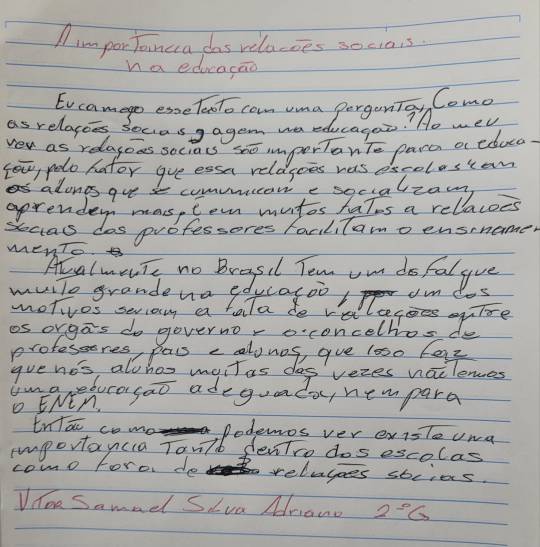 A importaincia das relacões sociais.
na educação
Eu camego esse Texto com uma pergunta, Como
as relações socias agem na educação? Ao meu
ver as relações sociais são importante para a educa-
ção, pelo fator que essa relações nas escolas
os alunos que se comunicam e socializam,
aprendem mais, e em muitos fatos a relações
sociais dos professores facilitam o ensiname-
mento.
Atualmente no Brasil Tem um desfalque
muito grande na educação, um dos
motivos seriam a falta de relações entre
os orgãs do governo, o concelhos de
professores, pais e alunos, que isso faz
que nós, alunos muitas das vezes não temos
uma educação adequada, nem para
o ENEM.
Então como podemos ver existe uma
importancia Tanto dentro das escolas
como fora. de relações socias.
Vitor Samuel Silva Adriano 2°G